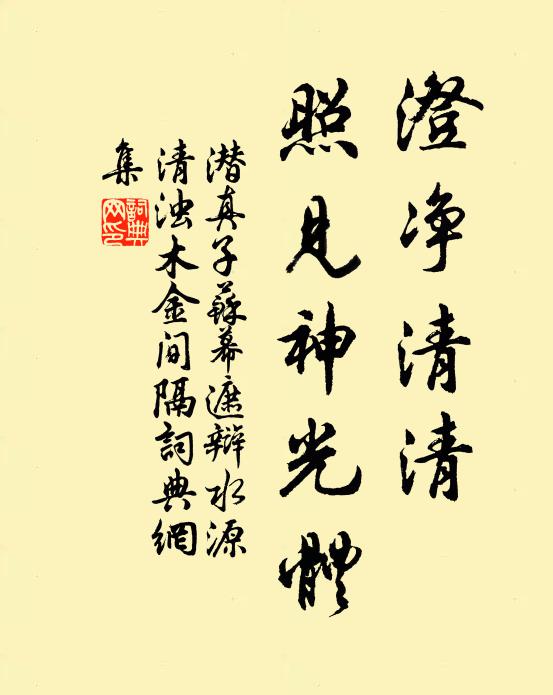 澄净清清
照見神光體
潜真子蘇幕遮辩水源
清浊木金间隔詞典網
集
詞典网印